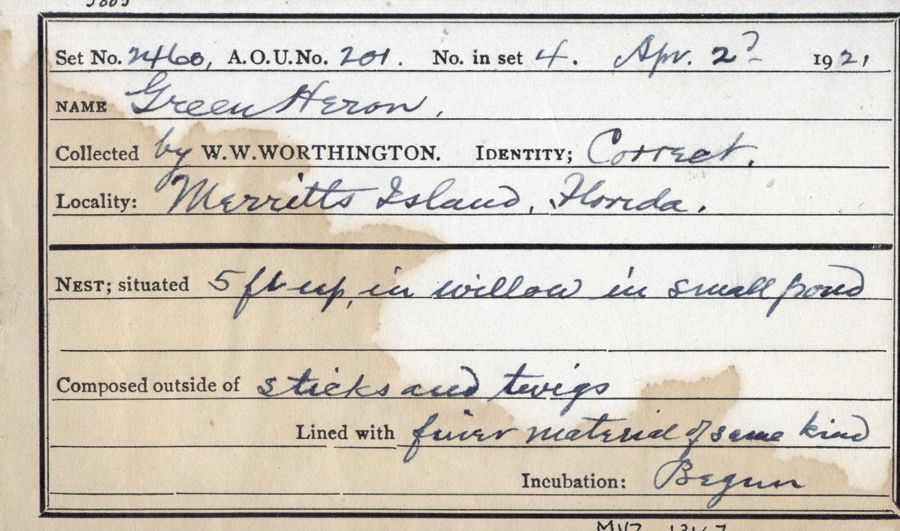 Set No. 2460, A.O.U.No. 201. No. in set 4. Apr. 2? 1921
NAME Green Heron.
Collected by W.W.WORTHINGTON. IDENTITY; Correct.
Locality: Merritts Island, Florida.
NEST; situated 5 ft up, in willow in small pond
Composed outside of sticks and twigs
Lined with finer material of same kind
Incubation: Begun